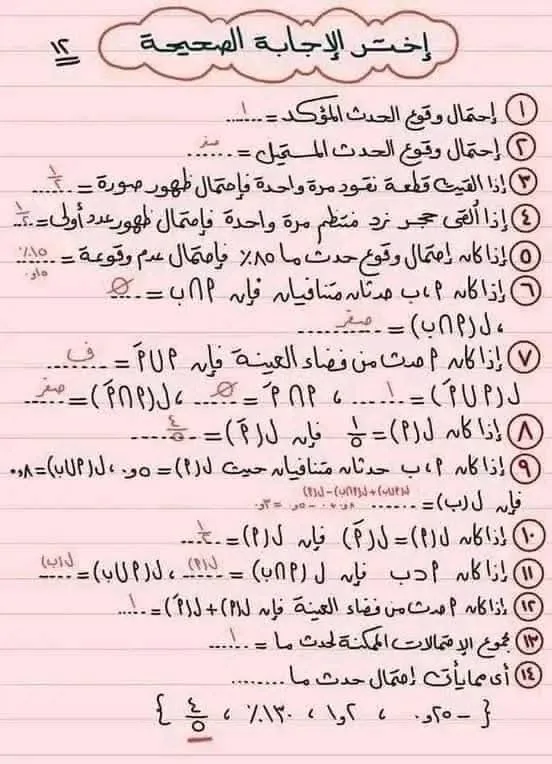 إختر الإجابة الصحيحة
١٢
١ إحتمال وقوع الحدث المؤكد = ...١...
٢ إحتمال وقوع الحدث المستحيل = ...صفر...
٣ إذا ألقيت قطعة نقود مرة واحدة فإحتمال ظهور صورة = ...١/٢...
٤ إذا ألقى حجر نرد منتظم مرة واحدة فإحتمال ظهور عدد أولى = ...١/٢
٥ إذا كان إحتمال وقوع حدث ما ٨٥٪ فإحتمال عدم وقوعة = ...١٥٪...
٠,١٥
٦ إذا كان P، ب حدثان متنافيان فإن P∩ب = ...∅...
، ل(P∩ب) = ...صفر...
٧ إذا كان P حدث من فضاء العينة فإن P∪Ṕ = ...ف...
ل(P∪Ṕ) = ...١...، P∩Ṕ = ...∅...، ل(P∩Ṕ) = ...صفر...
٨ إذا كان ل(P) = ١/٥ فإن ل(Ṕ) = ...٤/٥...
٩ إذا كان P، ب حدثان متنافيان حيث ل(P) = ٠,٥، ل(P∪ب) = ٠,٨
فإن ل(ب) = ...... ل(P∪ب)+ل(P∩ب)-ل(P)
٠,٨ + ٠ - ٠,٥ = ٠,٣
١٠ إذا كان ل(P) = ل(Ṕ) فإن ل(P) = ...١/٢...
١١ إذا كان P⊂ب فإن ل(P∩ب) = ...ل(P)...، ل(P∪ب) = ...ل(ب)...
١٢ إذا كان P حدث من فضاء العينة فإن ل(P)+ل(Ṕ) = ...١...
١٣ مجموع الإحتمالات الممكنة لحدث ما = ...١...
١٤ أى مما يأتى إحتمال حدث ما ........
{ -٠,٢٥ ، ١,٢ ، ١٣٠٪ ، ٤/٥ }